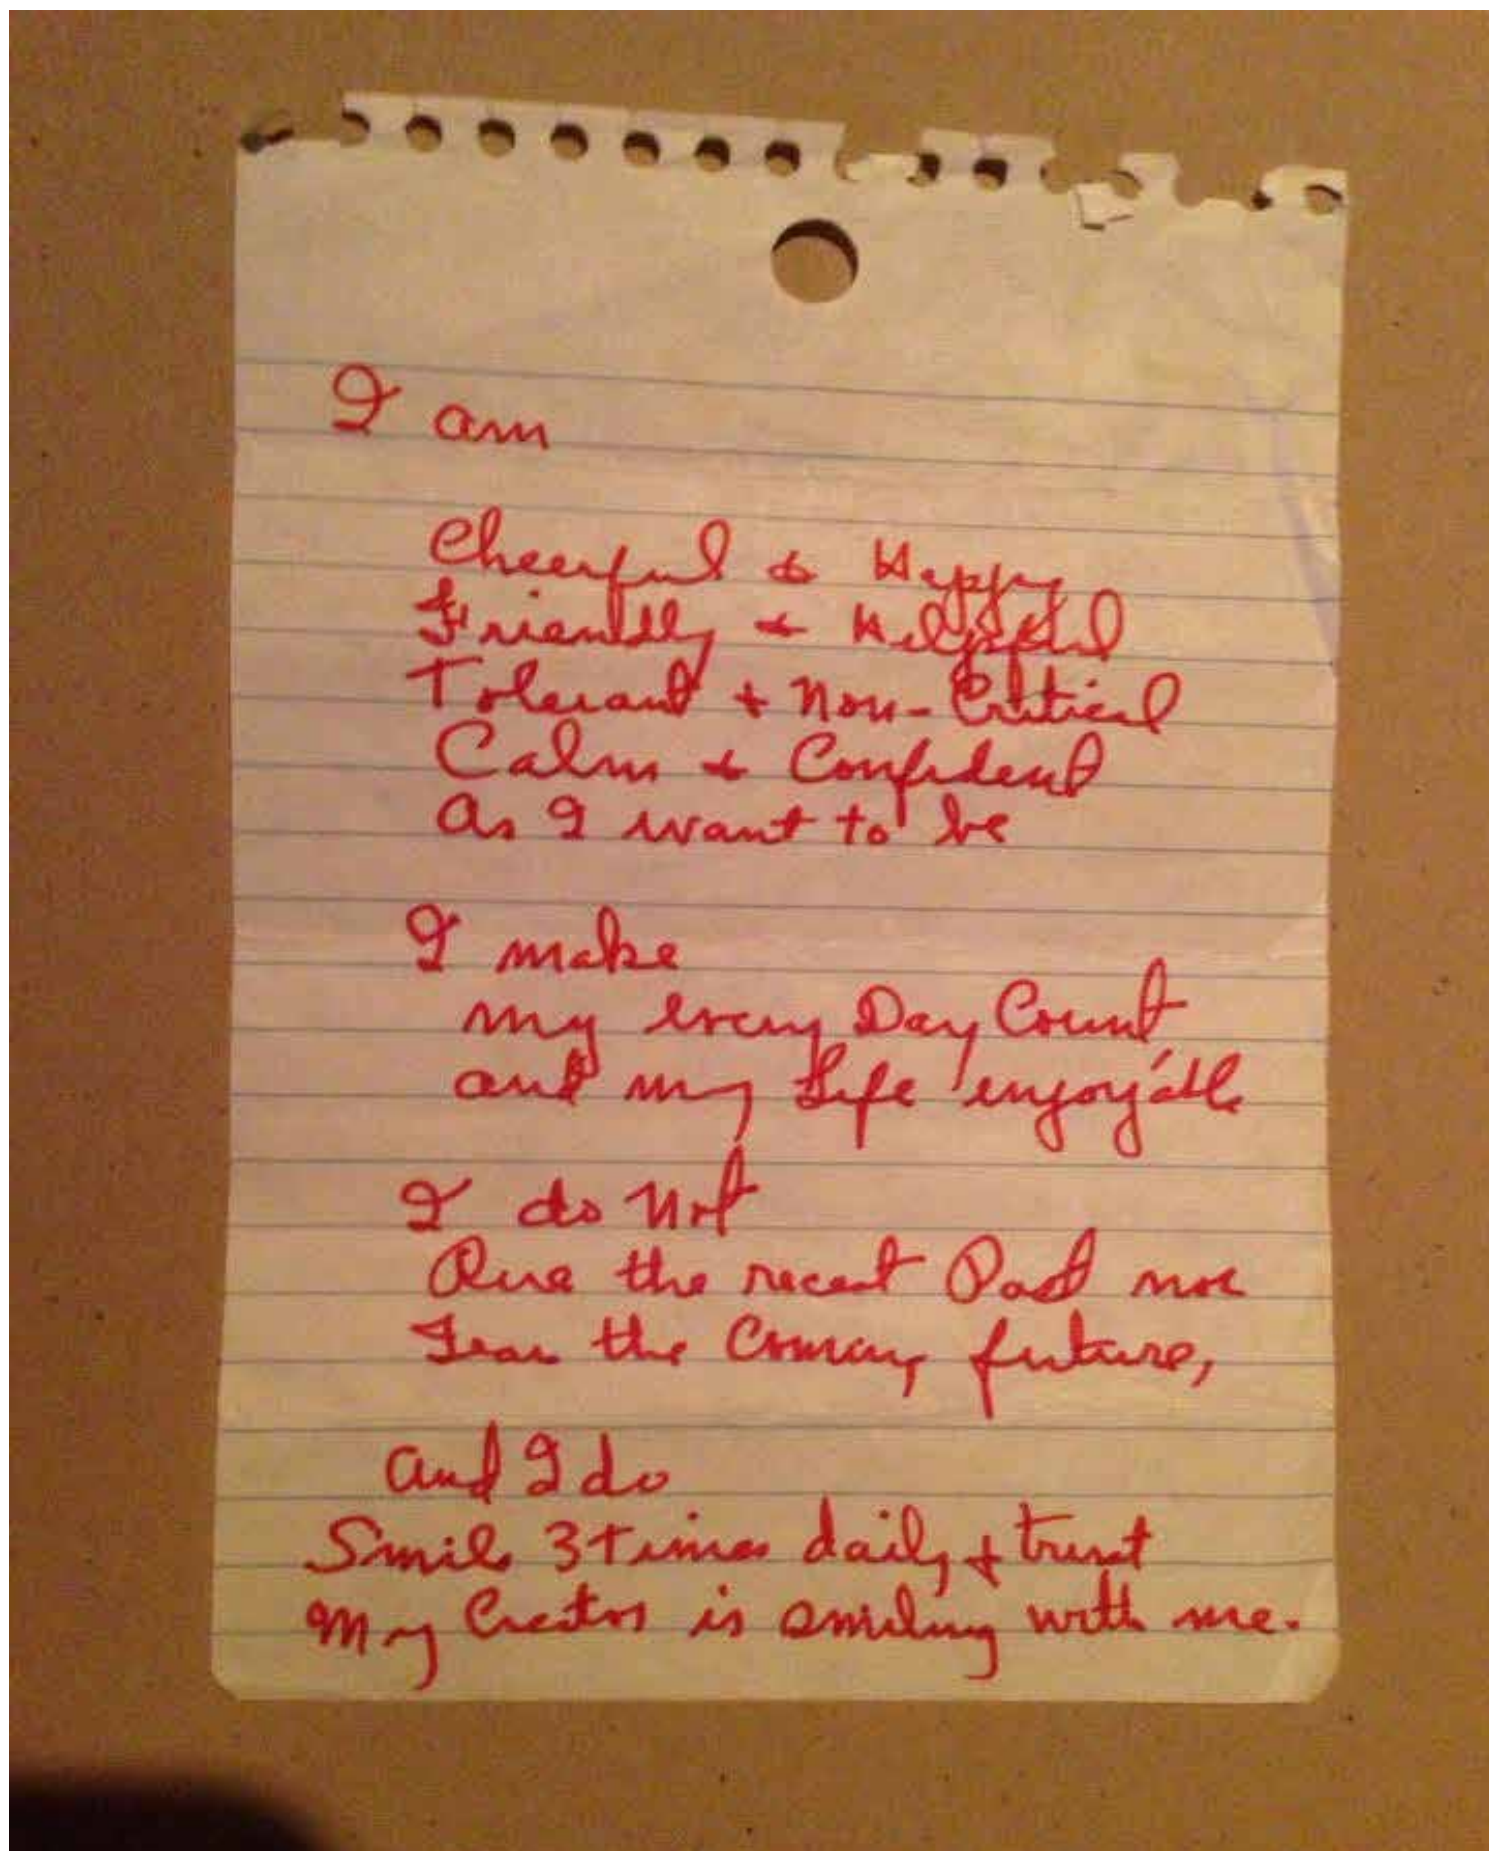 I am
Cheerful & Happy
Friendly & Helpful
Tolerant + Non-Critical
Calm & Confident
As I want to be
I make
my every Day Count
and my Life enjoyable
I do Not
the recent Past nor
Fear the Coming future,
And I do
Smile 3 Times daily + trust
My Creator is smiling with me.